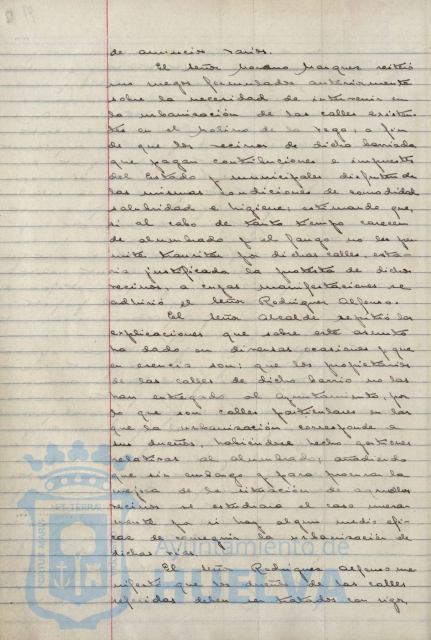 de anuncios varios.
El Señor Moreno Marquez reiteró
un ruego formulado anteriormente
sobre la necesidad de intervenir en
la urbanización de las calles existen-
tes en el Molino de la Vega, a fin
de que los vecinos de dicha barriada
que pagan contribuciones e impuestos
del Estado y municipales disfruten de
las mismas condiciones de comodidad
salubridad e higiene; estimando que,
si al cabo de tanto tiempo carecen
de alumbrado y el fango no les per
mite transitar por dichas calles, esta-
ria justificada la protesta de dichos
vecinos, a cuyas manifestaciones se
adhirió el Señor Rodriguez Alfonso.
El Señor Alcalde repitió las
explicaciones que sobre este asunto
ha dado en diversas ocasiones y que
en esencia son: que los propietarios
de las calles de dicho barrio no las
han entregado al Ayuntamiento, por
lo que son calles particulares en las
que la urbanización corresponde a
sus dueños, habiendose hecho gestiones
relativas al alumbrado; añadiendo
que sin embargo y para procurar la
mejora de la situación de aquellos
vecinos se estudiará el caso nueva-
mente por si hay algun medio efi-
caz de conseguir la urbanización de
dichas vías.
El Señor Rodriguez Alfonso ma
nifestó que los dueños de las calles
referidas deben ser tratados con rigor,
Ayuntamiento de
HUELVA